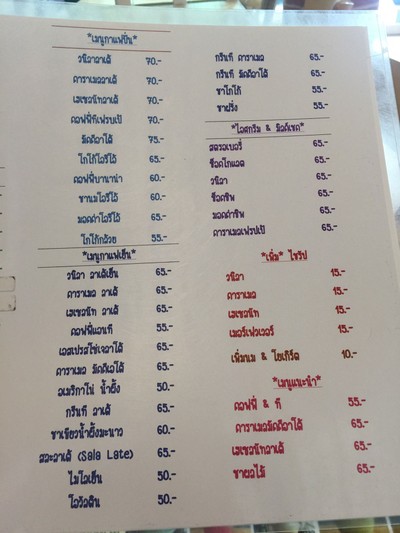 *เมนูกาแฟปั่น*
วนิลาลาเต้ 70.-
คาราเมลลาเต้ 70.-
เฮเซลนัทลาเต้ 70.-
คอฟฟี่ทีเฟรบเป้ 70.-
มัคคิอาโต้ 75.-
โกโก้โอรีโอ้ 65.-
คอฟฟี่บานาน่า 60.-
ชานมโอรีโอ้ 60.-
มอคค่าโอรีโอ้ 65.-
โกโก้กล้วย 55.-
*เมนูกาแฟเย็น*
วนิลา ลาเต้เย็น 65.-
คาราเมล ลาเต้ 65.-
เฮเซลนัท ลาเต้ 65.-
คอฟฟี่แอนที 55.-
เอสเปรสโซ่เจลาโต้ 65.-
คาราเมล มัคคิเอโต้ 65.-
อเมริกาโน่ น้ำผึ้ง 50.-
กรีนที ลาเต้ 65.-
ชาเขียวน้ำผึ้งมะนาว 60.-
สละลาเต้ (Sala Late) 65.-
ไมโลเย็น 50.-
โอวัลติน 50.-
กรีนที คาราเมล 65.-
กรีนที มัคคิอาโต้ 65.-
ชาโกโก้ 55.-
ชาฝรั่ง 55.-
*ไอศกรีม & มิลค์เชค*
สตรอเบอรี่ 65.-
ช็อคโกแลต 65.-
วนิลา 65.-
ช็อคชิพ 65.-
มอคค่าชิพ 65.-
คาราเมลเฟรปเป้ 65.-
*เพิ่ม* ไซรัป
วนิลา 15.-
คาราเมล 15.-
เฮเซลนัท 15.-
เมอร์เฟลเวอร์ 15.-
เพิ่มนม & โยเกิร์ต 10.-
*เมนูแนะนำ*
คอฟฟี่ & ที 55.-
คาราเมลมัคคิอาโต้ 65.-
เฮเซลนัทลาเต้ 65.-
ชาผลไม้ 65.-